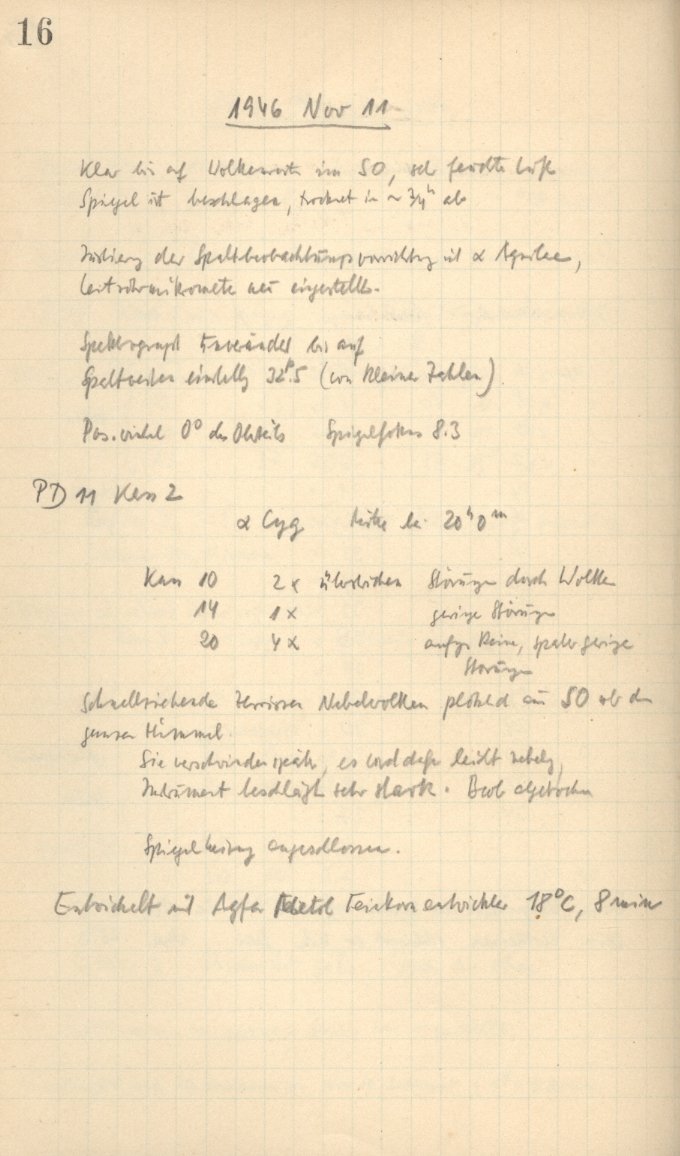 16
1946 Nov 11
Klar bis auf Wolkenreste im SO, sehr feuchte Luft
Spiegel ist beschlagen, trocknet in ~ 3/4 h ab
der Spaltbeobachtungsvorrichtung mit α Aquilae,
Leitrohrmikrometer neu eingestellt.
Spektrograph unverändert bis auf
Spaltweiten 32.5 (von kleinen Zahlen)
Pos. winkel 0° des Spiegelfokus 8.3
PD 11 Kass 2
α Cyg Mitte bei 20h 0m
Kam 10 2 x überstrichen Störungen durch Wolken
14 1 x geringe Störungen
20 4 x anfgs keine, später geringe
Störungen
Schnellziehende zerrissene Nebelwolken plötzlich aus SO ob den
ganzen Himmel.
Sie verschwinden später, es wird dafür leicht nebelig,
Instrument beschlägt sehr stark. Beob abgebrochen
Spiegelheizung angeschlossen.
Entwickelt mit Agfa Metol Feinkornentwickler 18°C, 8 min